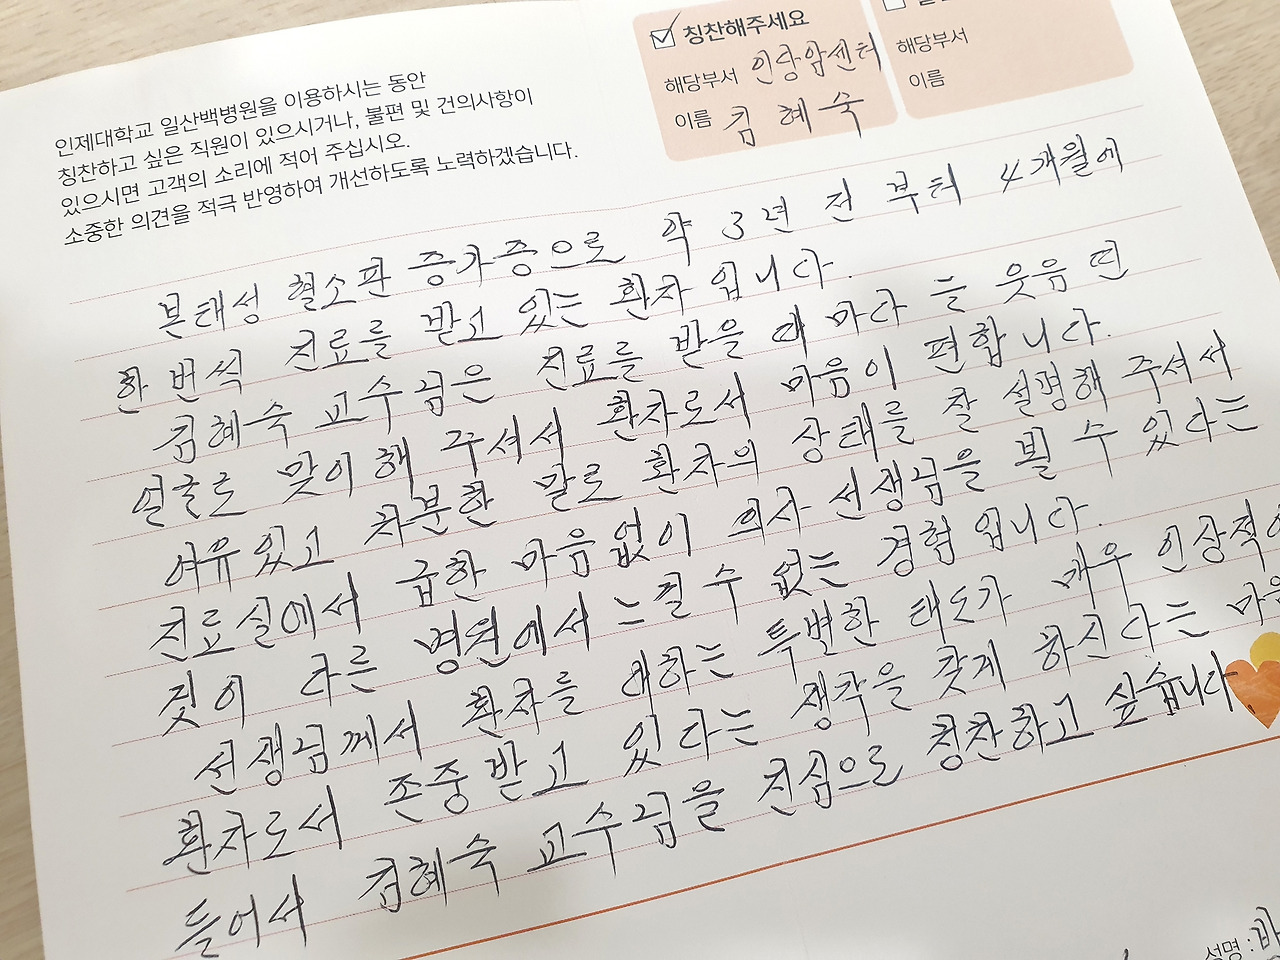 인제대학교 일산백병원을 이용하시는 동안
칭찬하고 싶은 직원이 있으시거나, 불편 및 건의사항이
있으시면 고객의 소리에 적어 주십시오.
소중한 의견을 적극 반영하여 개선하도록 노력하겠습니다.
칭찬해주세요
해당부서
이름 김혜숙
해당부서
이름
본태성 혈소판 증가증으로 약 3년 전부터 4개월에
한 번씩 진료를 받고 있는 환자입니다.
김혜숙 교수님은 진료를 받을 때마다 늘 웃음 띤
얼굴로 맞이해 주셔서 환자로서 마음이 편합니다.
여유있고 차분한 말로 환자의 상태를 잘 설명해 주셔서
진료실에서 급한 마음없이 의사 선생님을 뵐 수 있다는
것이 다른 병원에서 느낄 수 없는 경험입니다.
선생님께서 환자를 대하는 특별한 태도가 매우 인상적이
환자로서 존중받고 있다는 생각을 갖게 하신다는 마음
들어서 김혜숙 교수님을 진심으로 칭찬하고 싶습니다
성명 : 박